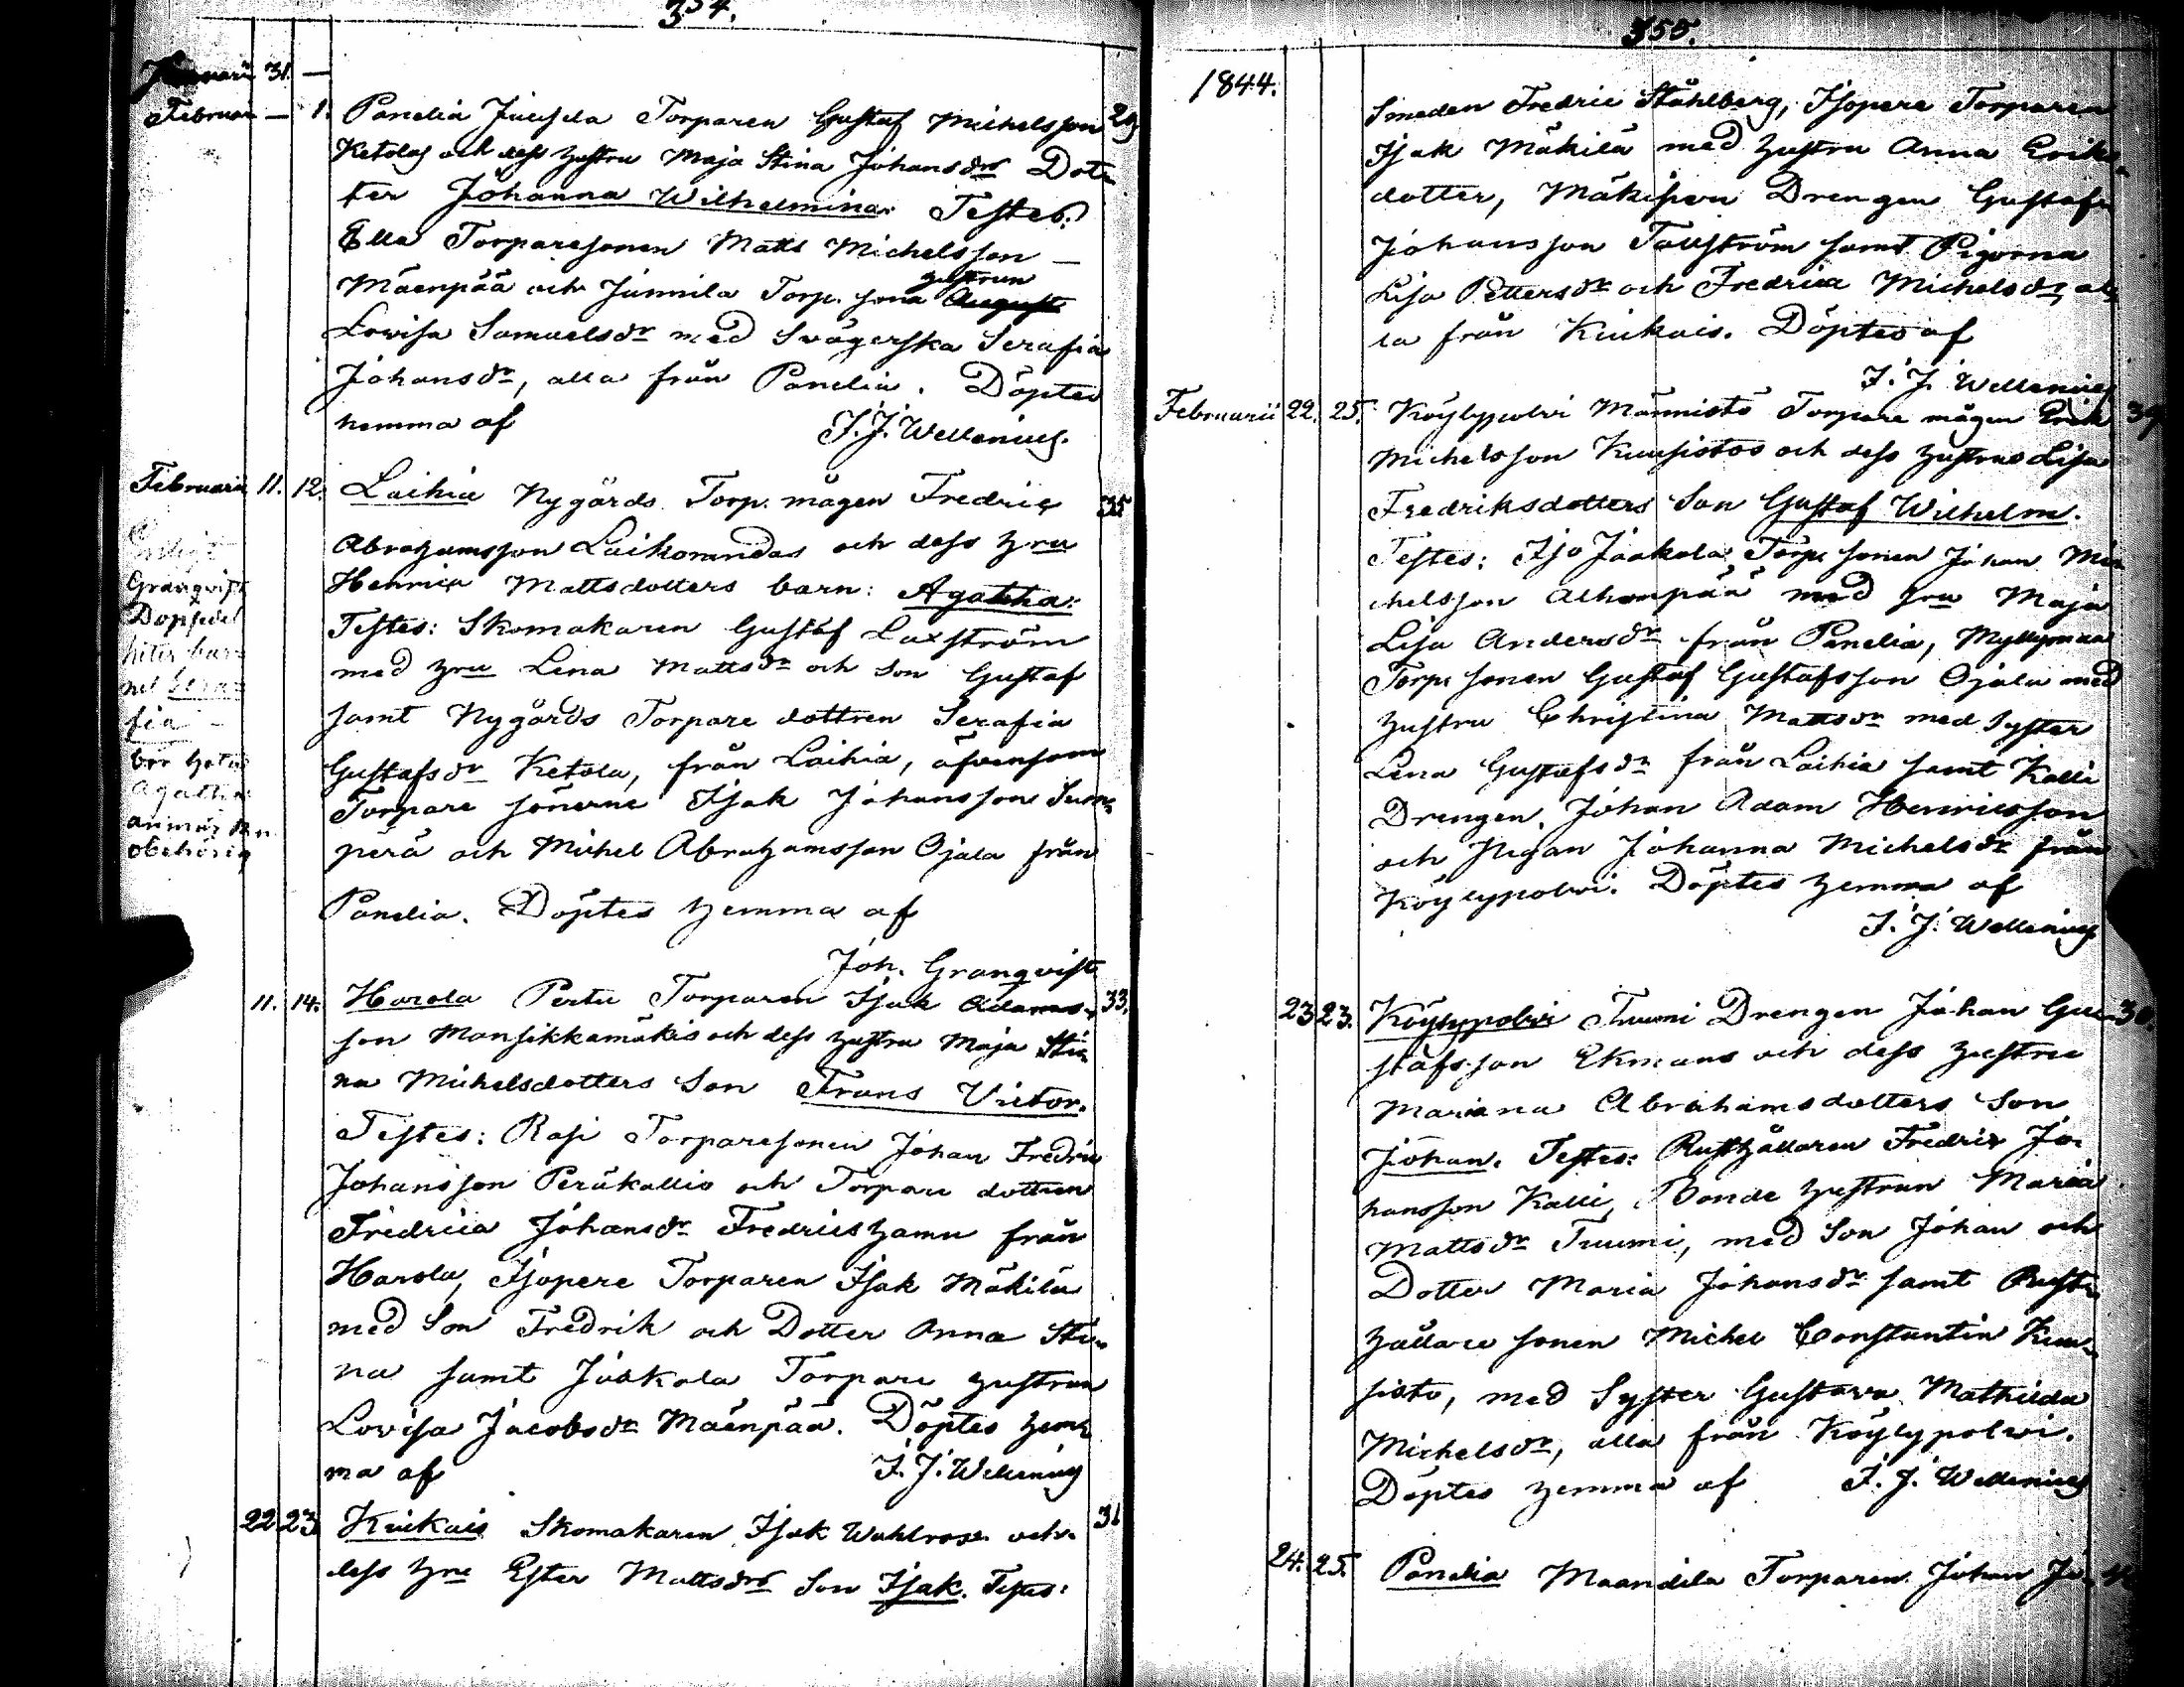 354.
Januarii 31. —
Februari — 1. Panelia Torparen Gustaf Michelsson 29
Ketolas och dess hustru Maja Stina Johansdrs Dot-
ter Johanna Wilhelmina. Testes:
Ella Torparesonen Matts Michelsson —
Mäenpää och Junnila Torp. sona hustrun August
Lovisa Samuelsdr med Svägerska Serafia
Johansdr, alla från Panelia. Döptes
hemma af J. J. Wellenius.
Februarii 11. 12. Laihia Nygårds Torp. mågen Fredric 35
Abrahamsson Laikonmdas och dess hru
Henrica Mattsdotters barn: Agatha:
Testes: Skomakaren Gustaf Laxström
med hru Lena Mattsdr och Son Gustaf
samt Nygårds Torpare dottren Serafia
Gustafsdr Ketola, från Laihia, äfvensom
Torpare sönerne Isak Johansson Suon-
perä och Michel Abrahamsson Ojala från
Panelia. Döptes hemma af
Joh. Granqvist
Granqvist
Dopsedel
hitis bar-
net Sera-
fia —
bör heta
Agatha
anmärkn.
obehörig
11. 14. Harola Perttu Torparen Isak Adams- 33.
son Mansikkamäkis och dess hustru Maja Sti-
na Michelsdotters Son Frans Victor.
Testes: Rasi Torparesonen Johan Fredric
Johansson Peräkallio och Torpare dottren
Fredrica Johansdr Fredricshamn från
Harola, Isopere Torparen Isak Mäkilä
med Son Fredrik och Dotter Anna Sti-
na samt Jaakola Torpare hustrun
Lovisa Jacobsdr Mäenpää. Döptes hem-
ma af J. J. Wellenius
22. 23. Kiukais Skomakaren Isak Wahlroos och
dess hru Ester Mattsdrs Son Isak. Testes: 31
355.
1844.
Smeden Fredric Ståhlberg, Isopere Torparen
Isak Mäkilä med hustru Anna Eriks-
dotter, Mäkipere Drengen Gustaf
Johansson Tallström samt Pigorna
Lisa Pettersdr och Fredrica Michelsdr, al-
la från Kiukais. Döptes af
J. J. Wellenius
Februarii 22. 25. Köylypolvi Männistö Torpare mågen Erik 39
Michelsson Kuusistos och dess hustrus Lisa
Fredriksdotters Son Gustaf Wilhelm.
Testes: Iso Jaakola Torpe sonen Johan Mi-
chelsson Alhonpää med hru Maja
Lisa Andersdr från Panelia, Myllymaa
Torpe sonen Gustaf Gustafsson Ojala med
hustru Christina Mattsdr med Syster
Lena Gustafsdr från Laihia samt Kalli
Drengen Johan Adam Henricsson
och Pigan Johanna Michelsdr från
Köylypolvi. Döptes hemma af
J. J. Wellenius
23. 23. Köylypolvi Tuumi Drengen Johan Gu- 30.
stafsson Ekmans och dess hustru
Mariana Abrahamsdotters Son
Johan. Testes: Rusthållaren Fredric Jo-
hansson Kalli, Bonde hustrun Maria
Mattsdr Tuumi, med Son Johan och
Dotter Maria Johansdr samt Rust-
hållare sonen Michel Constantin Kuu-
sisto, med Syster Gustava Mathilda
Michelsdr, alla från Köylypolvi.
Döptes hemma af J. J. Wellenius
24. 25. Panelia Maandila Torparen Johan Jo-